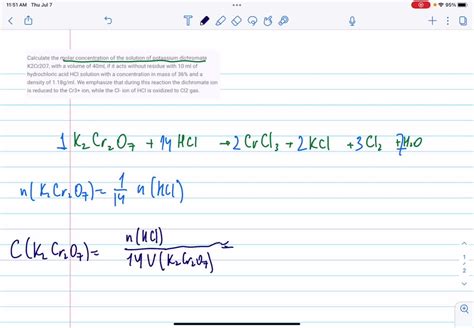 11:51 AM Thu Jul 7
95%
Calculate the molar concentration of the solution of potassium dichromate
K2Cr2O7, with a volume of 40ml, if it acts without residue with 10 ml of
hydrochloric acid HCl solution with a concentration in mass of 36% and a
density of 1.18g/ml. We emphasize that during this reaction the dichromate ion
is reduced to the Cr3+ ion, while the Cl- ion of HCl is oxidized to Cl2 gas.
1 K₂Cr₂O₇ + 14HCl → 2CrCl₃ + 2KCl + 3Cl₂ + 7H₂O
n(K₂Cr₂O₇) = 1/14 n(HCl)
C(K₂Cr₂O₇) = n(HCl) / 14V(K₂Cr₂O₇) =
1
2